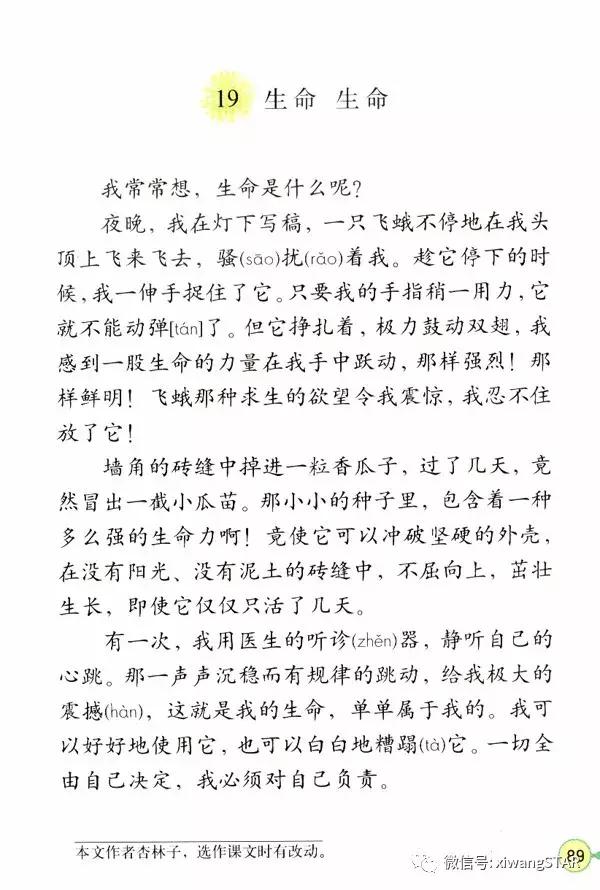 19 生命 生命
我常常想，生命是什么呢？
夜晚，我在灯下写稿，一只飞蛾不停地在我头
顶上飞来飞去，骚(sāo)扰(rǎo)着我。趁它停下的时
候，我一伸手捉住了它。只要我的手指稍一用力，它
就不能动弹[tán]了。但它挣扎着，极力鼓动双翅，我
感到一股生命的力量在我手中跃动，那样强烈！那
样鲜明！飞蛾那种求生的欲望令我震惊，我忍不住
放了它！
墙角的砖缝中掉进一粒香瓜子，过了几天，竟
然冒出一截小瓜苗。那小小的种子里，包含着一种
多么强的生命力啊！竟使它可以冲破坚硬的外壳，
在没有阳光、没有泥土的砖缝中，不屈向上，茁壮
生长，即使它仅仅只活了几天。
有一次，我用医生的听诊(zhěn)器，静听自己的
心跳。那一声声沉稳而有规律的跳动，给我极大的
震撼(hàn)，这就是我的生命，单单属于我的。我可
以好好地使用它，也可以白白地糟蹋(tà)它。一切全
由自己决定，我必须对自己负责。
本文作者杏林子，选作课文时有改动。
89
微信号: xiwangSTAR